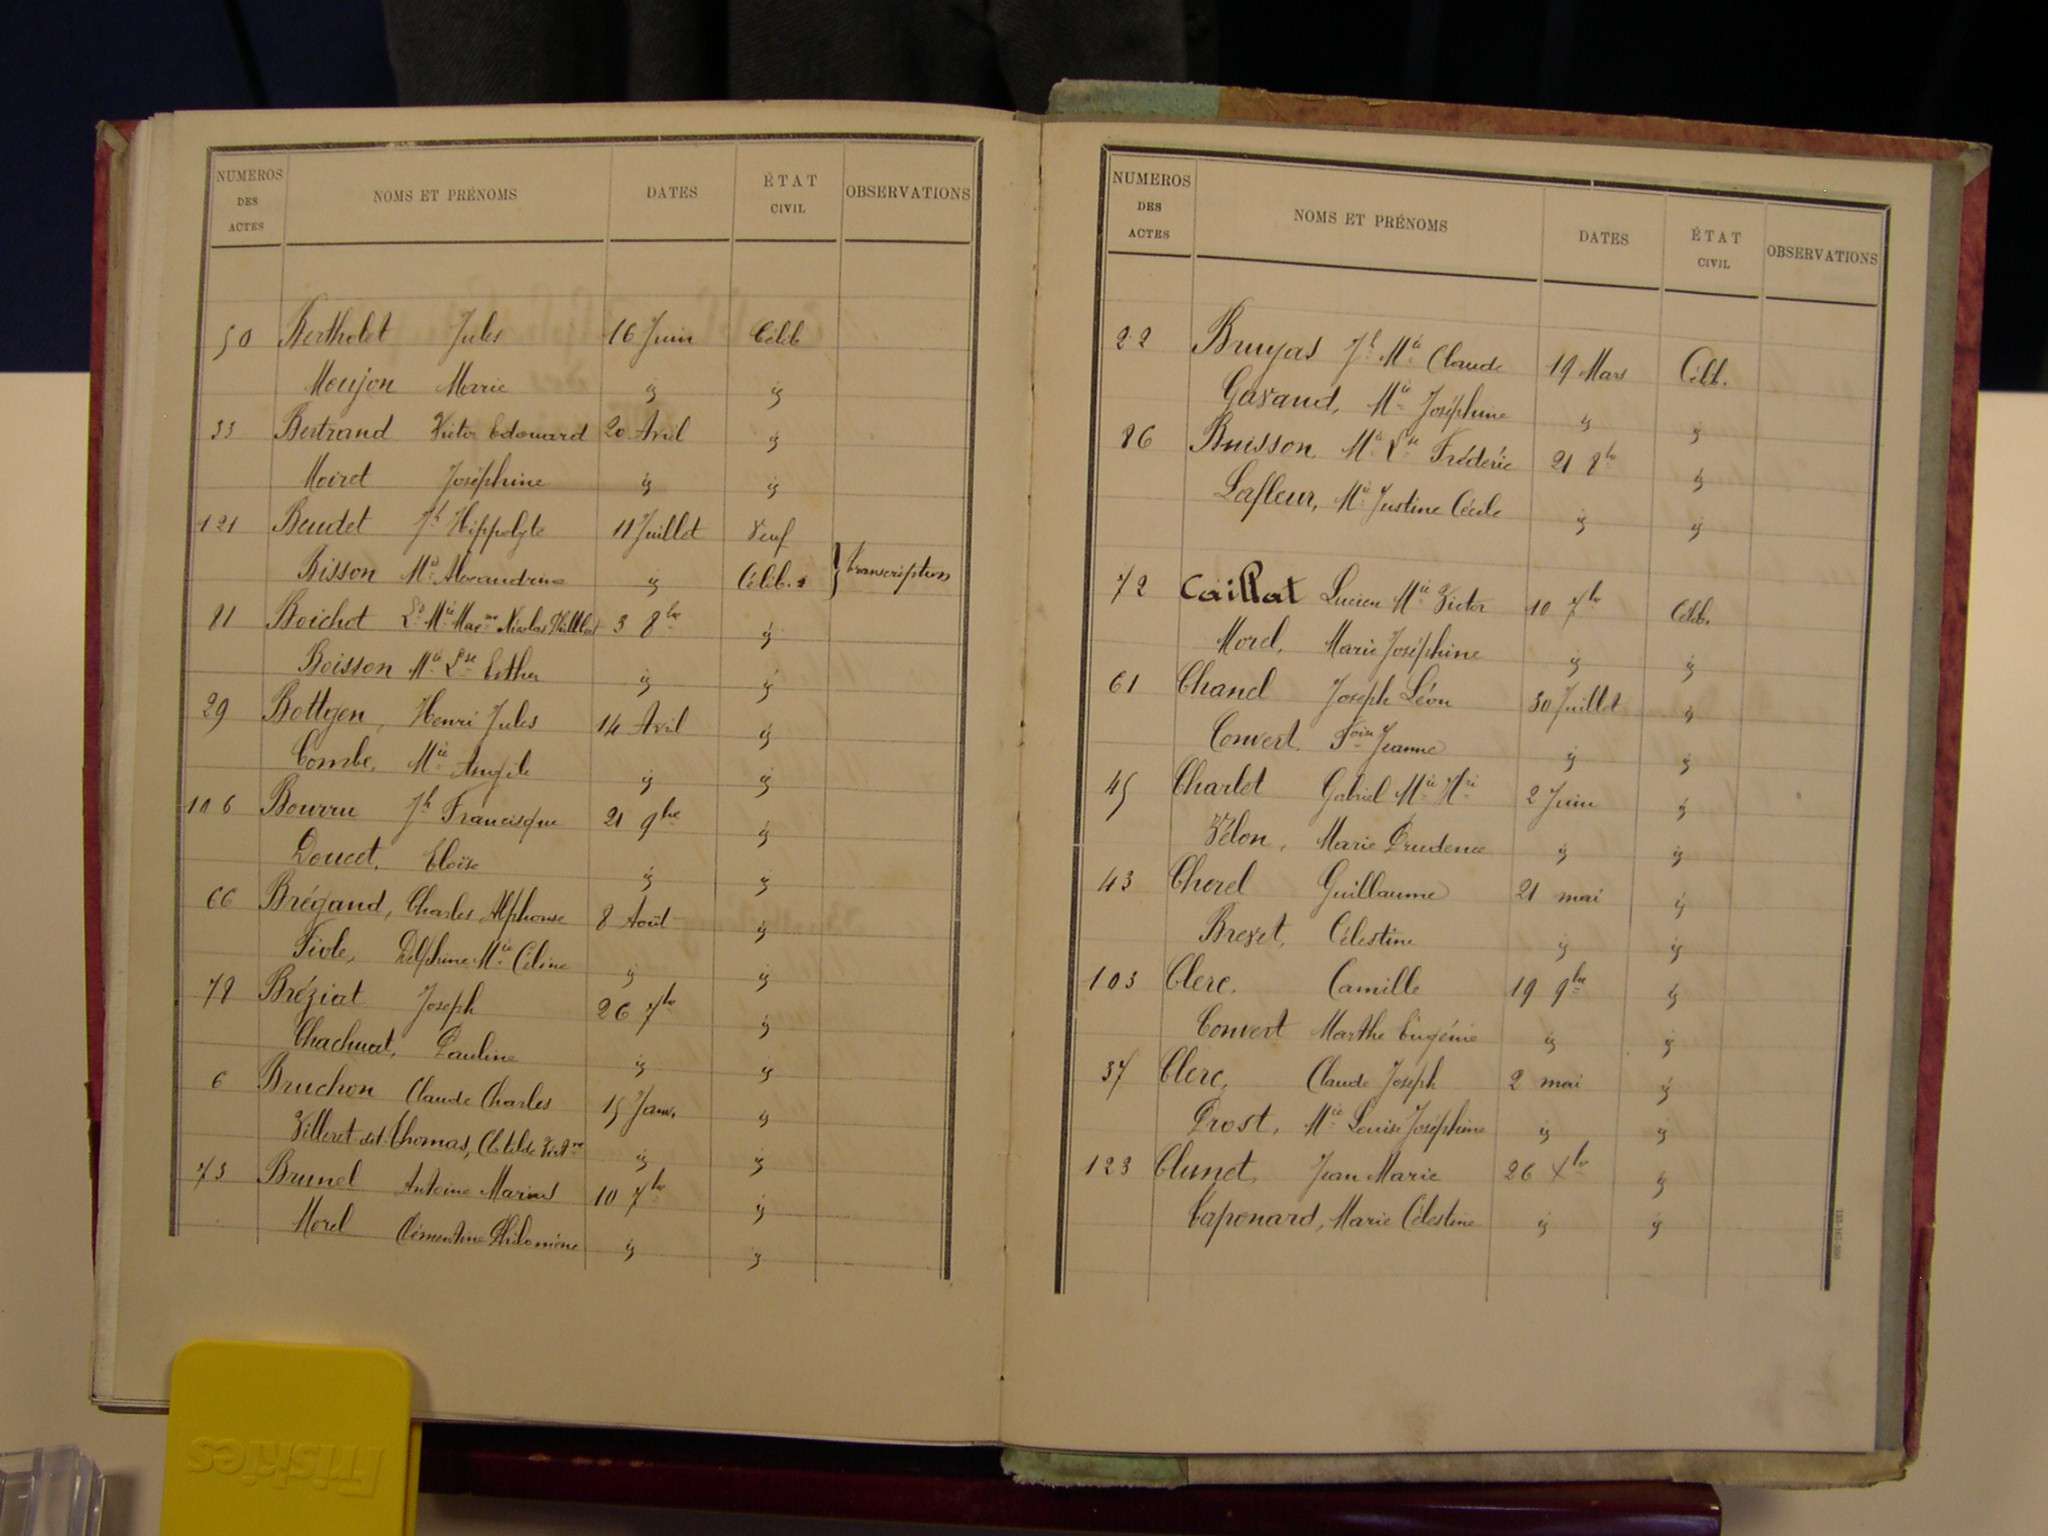 NUMEROS DES ACTES NOMS ET PRÉNOMS DATES ÉTAT CIVIL OBSERVATIONS
50 Bertholet Jules 16 Juin Célib
Moujon Marie id id
33 Bertrand Victor Edouard 20 Avril id
Moiret Joséphine id id
121 Baudet Jh Hippolyte 11 Juillet Veuf
Bisson Mie Alexandrine id Célib. } transcription
81 Boichot 3 8bre id
Boisson Mie Lse Esther id id
29 Bottgen, Henri Jules 14 Avril id
Combe, Mie Angèle id id
106 Bourru Jh Francisque 21 9bre id
Doucet, Eloïse id id
66 Brégand, Charles Alphonse 8 Août id
Fiole, Delphine Mie Céline id id
78 Bréziat Joseph 26 7bre id
Chachuat, Pauline id id
6 Bruchon Claude Charles 15 Janv. id
Villeret dit Thomas, Clotilde id id
73 Brunel Antoine Marius 10 7bre id
Morel Clémentine Philomène id id
NUMEROS DES ACTES NOMS ET PRÉNOMS DATES ÉTAT CIVIL OBSERVATIONS
22 Bruyas Jh Mie Claude 19 Mars Célib.
Gavand, Mie Joséphine id id
86 Buisson Mie Frédéric 21 8bre id
Lafleur, Mie Justine Cécile id id
72 Caillat Lucien Mie Victor 10 7bre Célib.
Morel, Marie Joséphine id id
61 Chanel Joseph Léon 30 Juillet id
Convert Jeanne id id
45 Charlet Gabriel Mie Hri 2 Juin id
Vélon, Marie Prudence id id
43 Chorel Guillaume 21 mai id
Brevet, Célestine id id
103 Clerc. Camille 19 9bre id
Convert Marthe Eugénie id id
37 Clerc, Claude Joseph 2 mai id
Prost, Mie Louise Joséphine id id
123 Clunet Jean Marie 26 Xbre id
Caponard, Marie Célestine id id
Friskies